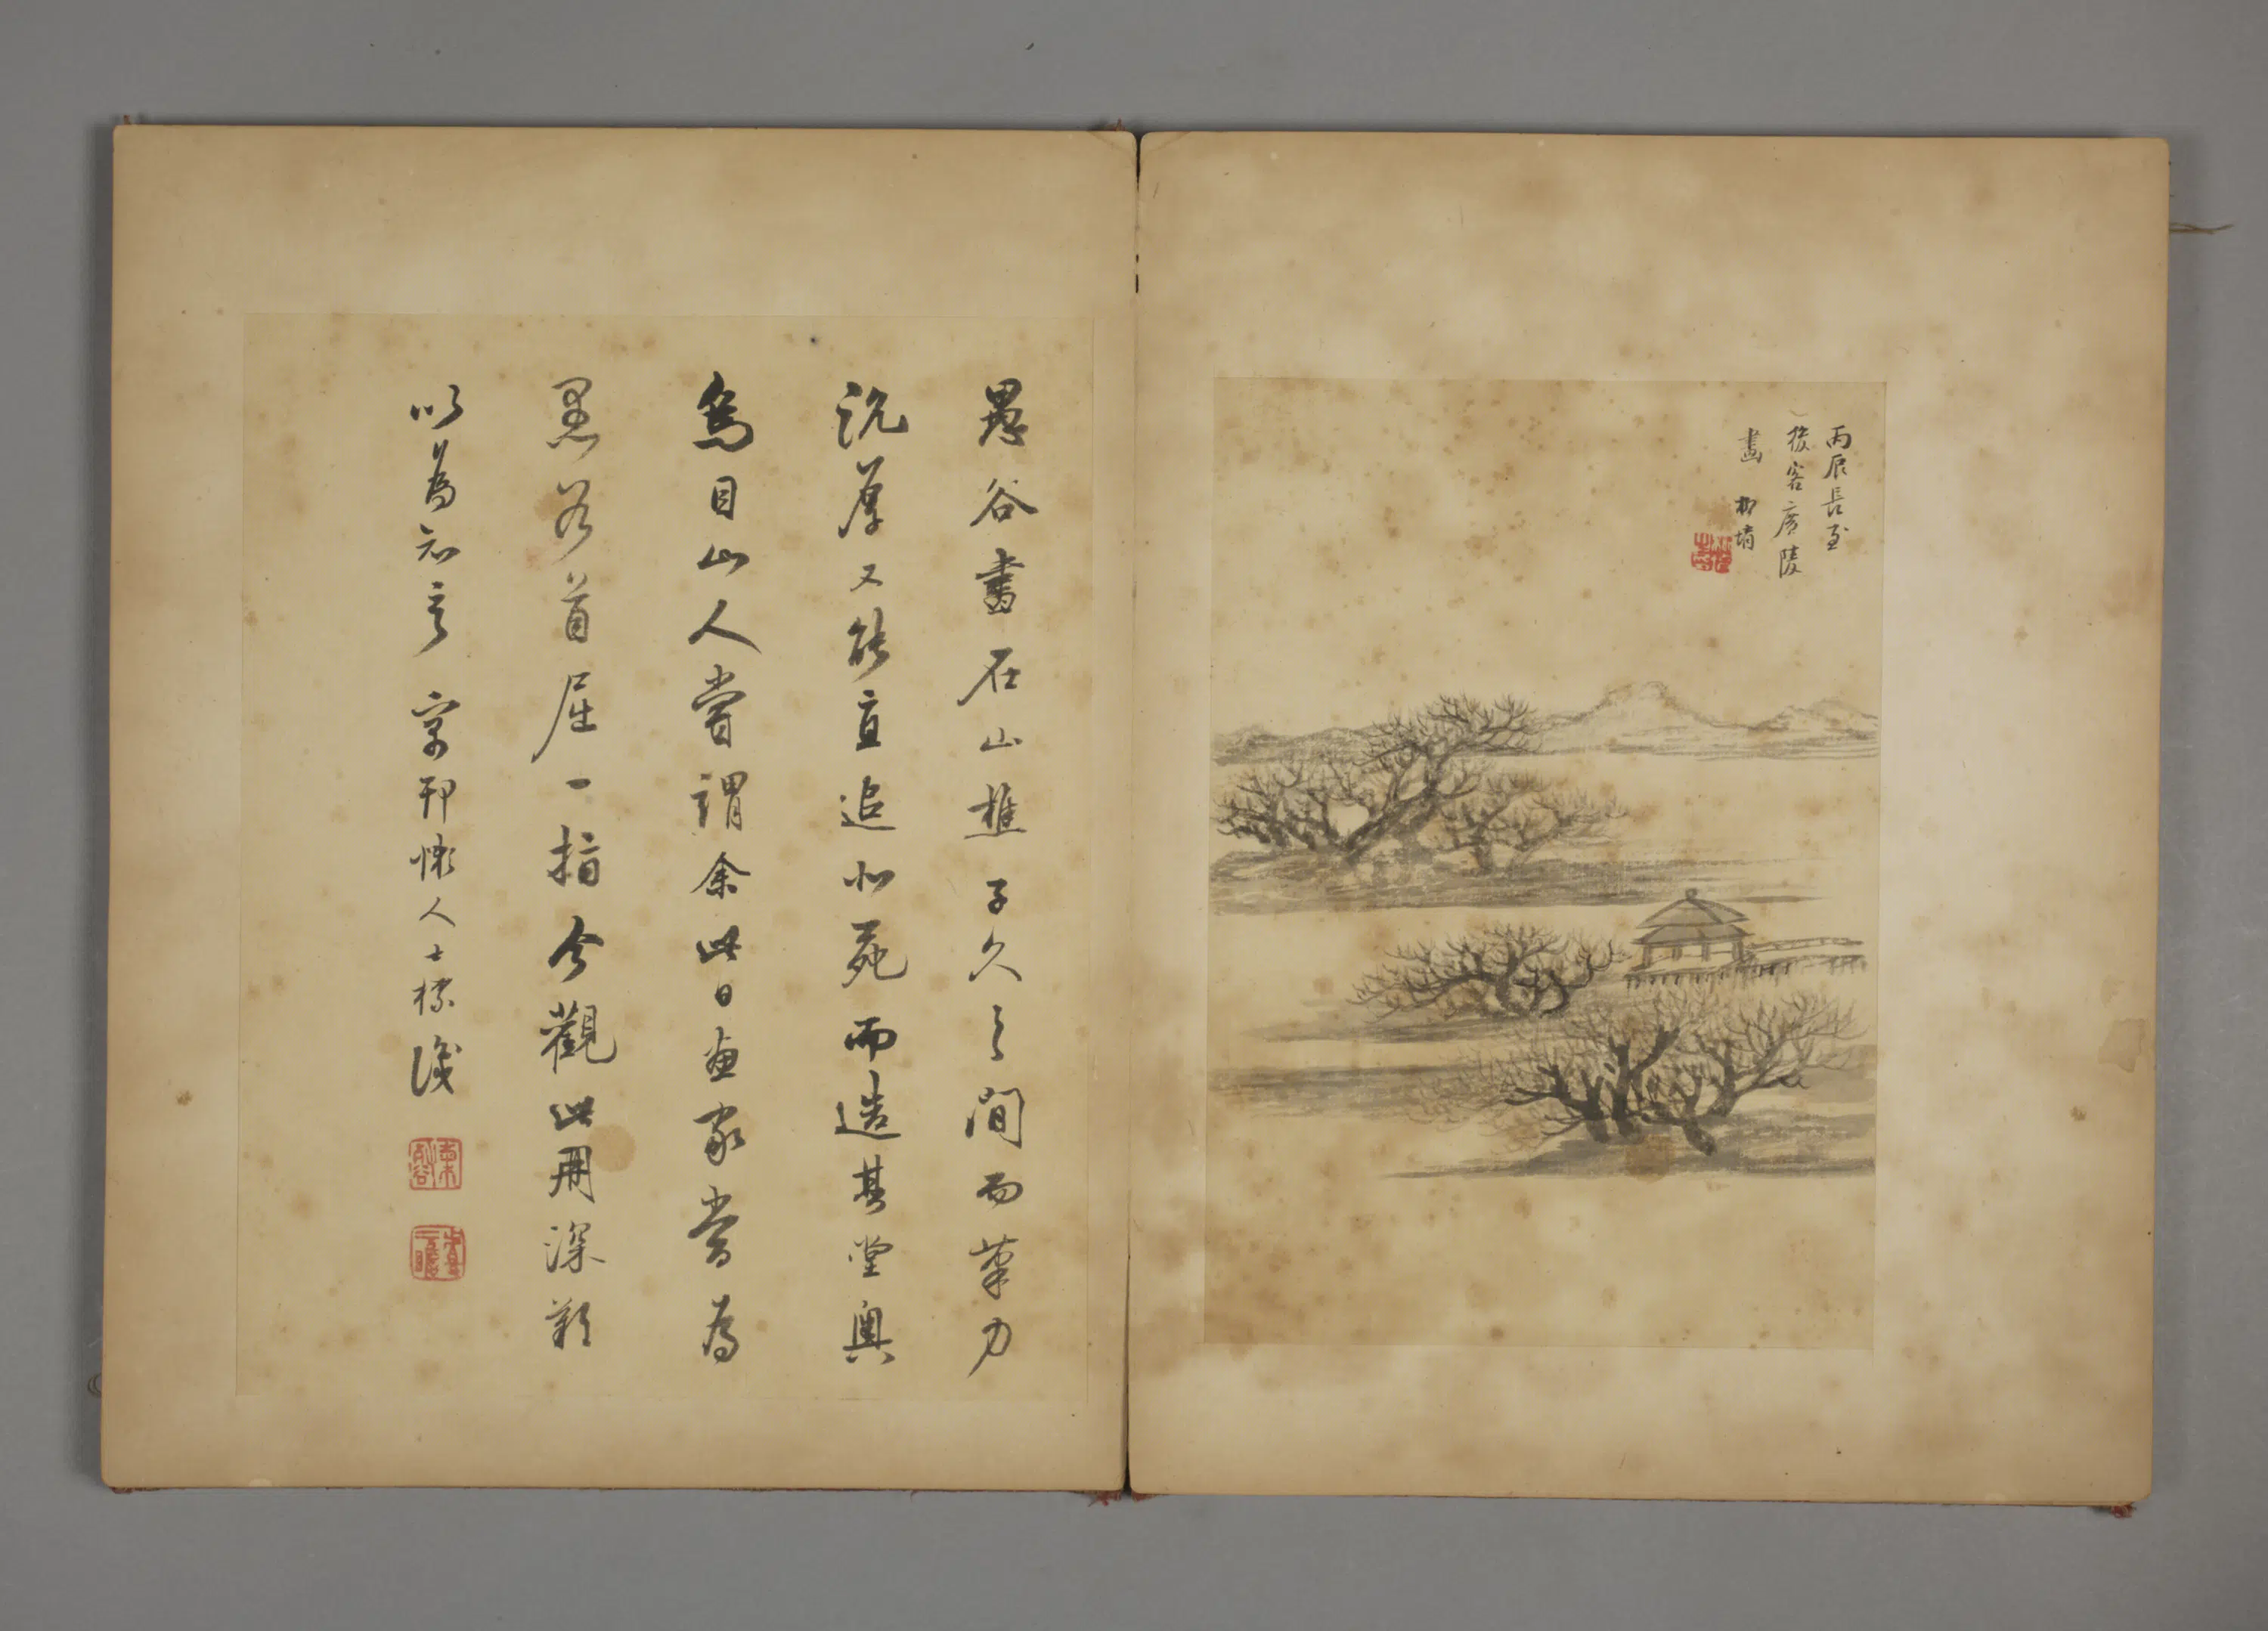 丙辰長至
後客广陵
畫 柳堉
愚谷畫在山樵子久之間而筆力
沉厚又能直追北苑而造其堂奧
烏目山人嘗謂余此日畫家當為
愚谷首屈一指今觀此冊深歎
以為知言 家邗懶人士標識